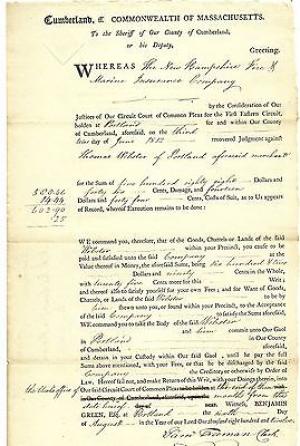 Cumberland, ss. COMMONWEALTH OF MASSACHUSETTS.
To the Sheriff of Our County of Cumberland,
or his Deputy,
Greeting.
WHEREAS The New Hampshire Fire &
Marine Insurance Company
by the Consideration of Our
Justices of Our Circuit Court of Common Pleas for the First Eastern Circuit,
holden at Portland for and within Our County
of Cumberland, aforesaid, on the third
day of June 1812 recovered Judgment against
Thomas Webster of Portland aforesaid merchant
for the Sum of five hundred eighty eight Dollars and
forty six Cents, Damage, and fourteen
Dollars and forty four Cents, Costs of Suit, as to Us appears
of Record, whereof Execution remains to be done:
588.46
14.44
602.90
25
WE command you, therefore, that of the Goods, Chattels or Lands of the said
Webster within your Precinct, you cause to be
paid and satisfied unto the said Company at the
Value thereof in Money, the aforesaid Sums, being six hundred & two
Dollars and ninety Cents in the Whole,
with twenty five Cents more for this Writ:
and thereof also to satisfy yourself for your own Fees; and for Want of Goods,
Chattels, or Lands of the said Webster to be by
him shewn unto you, or found within your Precinct, to the Acceptance
of the said Company to satisfy the Sums aforesaid,
WE command you to take the Body of the said Webster
and him commit unto our Gaol in
Portland in Our County
of Cumberland,
and detain in your Custody within Our said Gaol, until he pay the full
Sums above mentioned, with your Fees, or that he be discharged by the said
Company the Creditor or otherwise by Order of
Law. Hereof fail not, and make Return of this Writ, with your Doings therein, into
the Clerks office of Our said Circuit Court of Common Pleas
months from the
date hereof Witness, BENJAMIN
GREEN, Esq. at Portland the ninth Day
of August in the Year of Our Lord One thousand eight hundred and twelve.
Saml Freeman Clerk